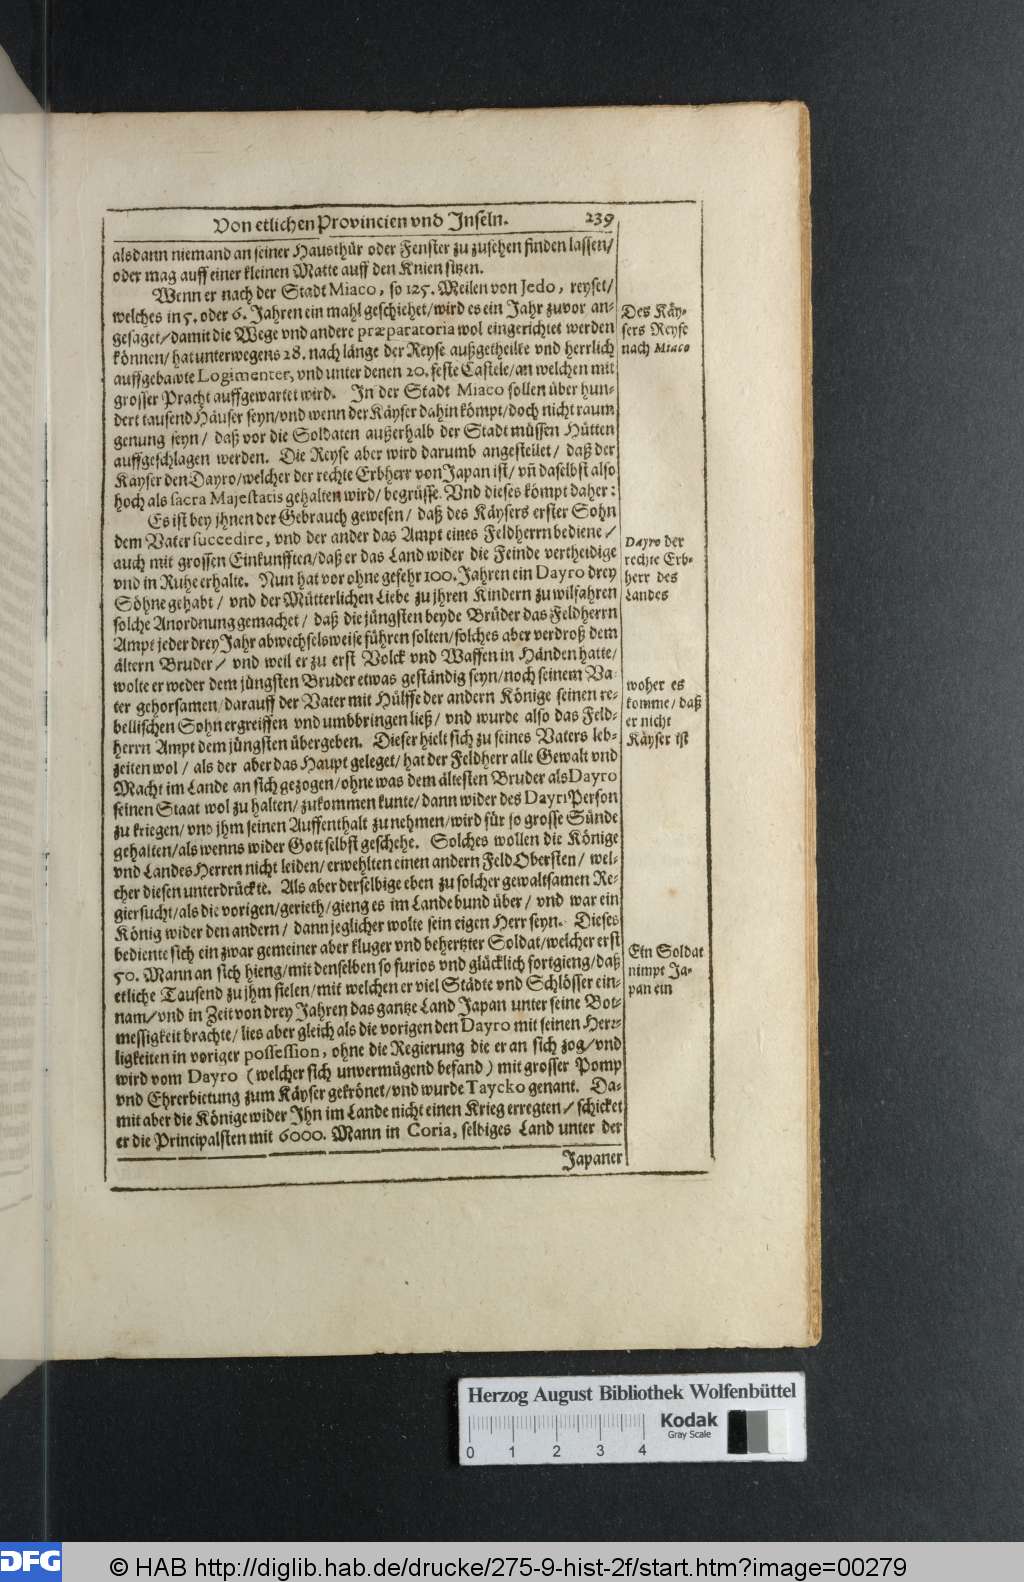 Von etlichen Provincien vnd Inseln. 239
alsdann niemand an seiner Hausthür oder Fenster zu zusehen finden lassen/
oder mag auff einer kleinen Matte auff den Knien sitzen.
Wenn er nach der Stadt Miaco, so 125. Meilen von Jedo, reyset/
welches in 5. oder 6. Jahren ein mahl geschiehet/wird es ein Jahr zuvor an-
gesaget/damit die Wege vnd andere præparatoria wol eingerichtet werden
können/hat unterwegens 28. nach länge der Reyse außgetheilte vnd herrlich
auffgebawte Logimenter, vnd unter denen 20. feste Castele/an welchen mit
grosser Pracht auffgewartet wird. In der Stadt Miaco sollen über hun-
dert tausend Häuser seyn/vnd wenn der Käyser dahin kömpt/doch nicht raum
genung seyn/ daß vor die Soldaten außerhalb der Stadt müssen Hütten
auffgeschlagen werden. Die Reyse aber wird darumb angestellet/ daß der
Käyser den Dayro/welcher der rechte Erbherr von Japan ist/ vn̄ daselbst also
hoch als sacra Majestatis gehalten wird/ begrüsse. Vnd dieses kömpt daher:
Es ist bey jhnen der Gebrauch gewesen/ daß des Käysers erster Sohn
dem Vater succedire, vnd der ander das Ampt eines Feldherrn bediene/
auch mit grossen Einkunfften/daß er das Land wider die Feinde vertheidige
vnd in Ruhe erhalte. Nun hat vor ohne gefehr 100. Jahren ein Dayro drey
Söhne gehabt/ vnd der Mütterlichen Liebe zu jhren Kindern zu wilfahren
solche Anordnung gemachet/ daß die jüngsten beyde Brüder das Feldherrn
Ampt jeder drey Jahr abwechselsweise führen solten/solches aber verdroß dem
ältern Bruder/ vnd weil er zu erst Volck vnd Waffen in Händen hatte/
wolte er weder dem jüngsten Bruder etwas geständig seyn/noch seinem Va-
ter gehorsamen/darauff der Vater mit Hülffe der andern Könige seinen re-
bellischen Sohn ergreiffen vnd umbbringen ließ/ vnd wurde also das Feld-
herrn Ampt dem jüngsten übergeben. Dieser hielt sich zu seines Vaters leb-
zeiten wol/ als der aber das Haupt geleget/hat der Feldherr alle Gewalt vnd
Macht im Lande an sich gezogen/ohne was dem ältesten Bruder als Dayro
seinen Staat wol zu halten/zukommen kunte/dann wider des Dayri Person
zu kriegen/vnd jhm seinen Auffenthalt zu nehmen/wird für so grosse Sünde
gehalten/als wenns wider Gott selbst geschehe. Solches wollen die Könige
vnd Landes Herren nicht leiden/erwehlten einen andern Feld Obersten/ wel-
cher diesen unterdrückte. Als aber derselbige eben zu solcher gewaltsamen Re-
giersucht/als die vorigen/gerieth/gieng es im Lande bund über/ vnd war ein
König wider den andern/ dann jeglicher wolte sein eigen Herr seyn. Dieses
bediente sich ein zwar gemeiner aber kluger vnd behertzter Soldat/welcher erst
50. Mann an sich hieng/mit denselben so furios vnd glücklich fortgieng/daß
etliche Tausend zu jhm fielen/mit welchen er viel Städte vnd Schlösser ein-
nam/vnd in Zeit von drey Jahren das gantze Land Japan unter seine Bot-
messigkeit brachte/ lies aber gleich als die vorigen den Dayro mit seinen Herr-
ligkeiten in voriger possession, ohne die Regierung die er an sich zog/vnd
wird vom Dayro (welcher sich unvermügend befand) mit grosser Pomp
vnd Ehrerbietung zum Käyser gekrönet/vnd wurde Taycko genant. Da-
mit aber die Könige wider Ihn im Lande nicht einen Krieg erregten/ schicket
er die Principalsten mit 6000. Mann in Coria, selbiges Land unter der
Japaner
Des Käy-
sers Reyse
nach Miaco
Dayro der
rechte Erb-
herr des
Landes
woher es
komme/daß
er nicht
Käyser ist
Ein Soldat
nimpt Ja-
pan ein
Herzog August Bibliothek Wolfenbüttel
Kodak
Gray Scale
0 1 2 3 4
DFG
© HAB http://diglib.hab.de/drucke/275-9-hist-2f/start.htm?image=00279